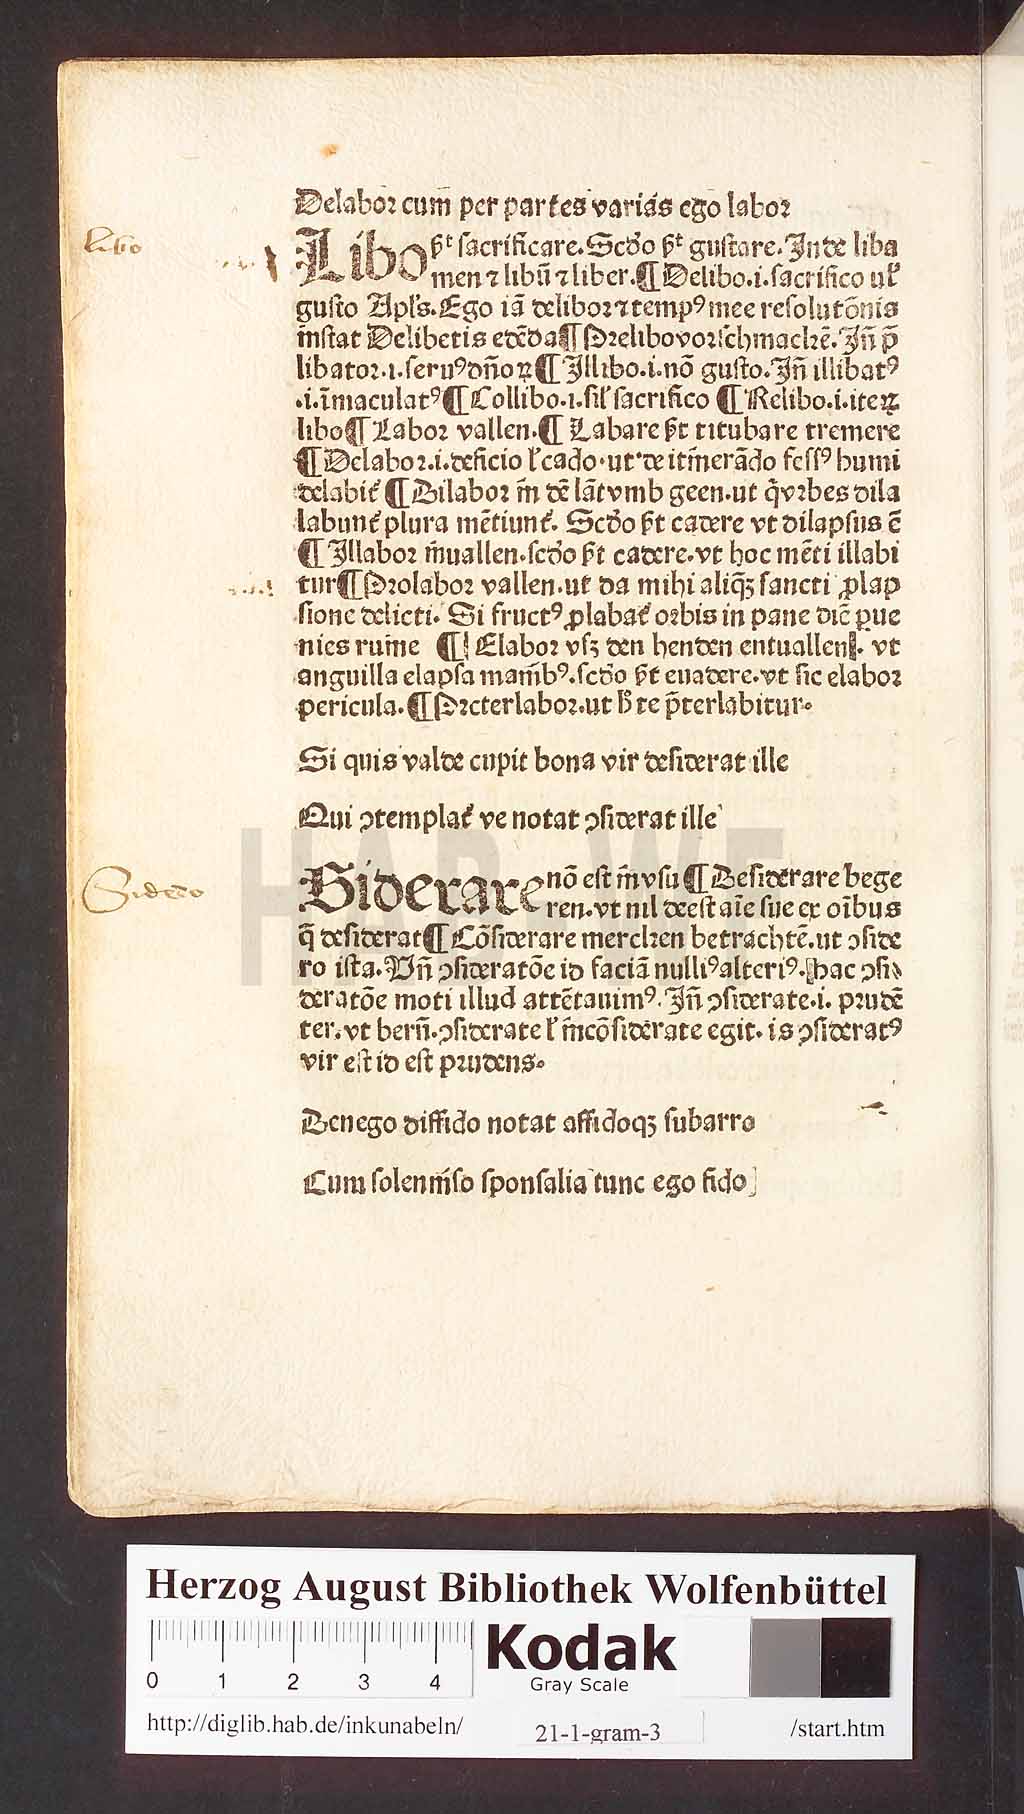 Delabor cum̄ per partes varias ego labor
libo
Libo p̄t sacrificare. Scd̄o p̄t gustare. Inde liba
men ⁊ libū ⁊ liber. ¶ Delibo .i. sacrifico ul̄
gusto Apl̄s. Ego iā delibor ⁊ tempꝰ mee resolutōnis
īnstat Delibetis edēda ¶ Prelibo vorschmackē. Iñ p̄
libator .i. seruꝰ dn̄oꝝ ¶ Illibo .i. nō gusto. Iñ illibatꝰ
.i. īmaculatꝰ ¶ Collibo .i. sil̄ sacrifico ¶ Relibo .i. iteꝝ
libo ¶ Labor vallen. ¶ Labare p̄t titubare tremere
¶ Delabor .i. deficio l̄ cado. ut de itīnerādo fessꝰ humi
delabit᷑ ¶ Dilabor m̄ dē lāt vmb geen. ut q̄ vrbes dila
labunt᷑ plura mētiunt᷑. Scd̄o p̄t cadere vt dilapsus ē
¶ Illabor īnuallen. scd̄o p̄t cadere. vt hoc mēti illabi
tur ¶ Prolabor vallen. ut da mihi aliqꝫ sancti ꝓlap
sione delicti. Si fructꝰ ꝓlabat᷑ orbis in pane diē ꝑue
nies ruine ¶ Elabor vſꝫ den henden entuallen. vt
anguilla elapsa manībꝰ. scd̄o p̄t euadere. vt sic elabor
pericula. ¶ Preterlabor. ut h̄ te p̄terlabitur.
Si quis valde cupit bona vir desiderat ille
Qui ꝯtemplat᷑ ve notat ꝯsiderat ille
Sidero
Siderare nō est īn vsu ¶ Desiderare bege
ren. vt nil deest aīe sue ex oībus
q̄ desiderat ¶ Cōsiderare mercken betrachtē. ut ꝯside
ro ista. Vn̄ ꝯsideratōe id faciā nulliꝰ alteriꝰ. hac ꝯsi
deratōe moti illud attētauimꝰ. Iñ ꝯsiderate .i. prudē
ter. vt bern̄. ꝯsiderate l̄ īncōsiderate egit. is ꝯsideratꝰ
vir est id est prudens.
Denego diffido notat affidoqꝫ subarro
Cum solennīso sponsalia tunc ego fido
Herzog August Bibliothek Wolfenbüttel
0 1 2 3 4
Kodak
Gray Scale
http://diglib.hab.de/inkunabeln/ 21-1-gram-3 /start.htm
HAB WF